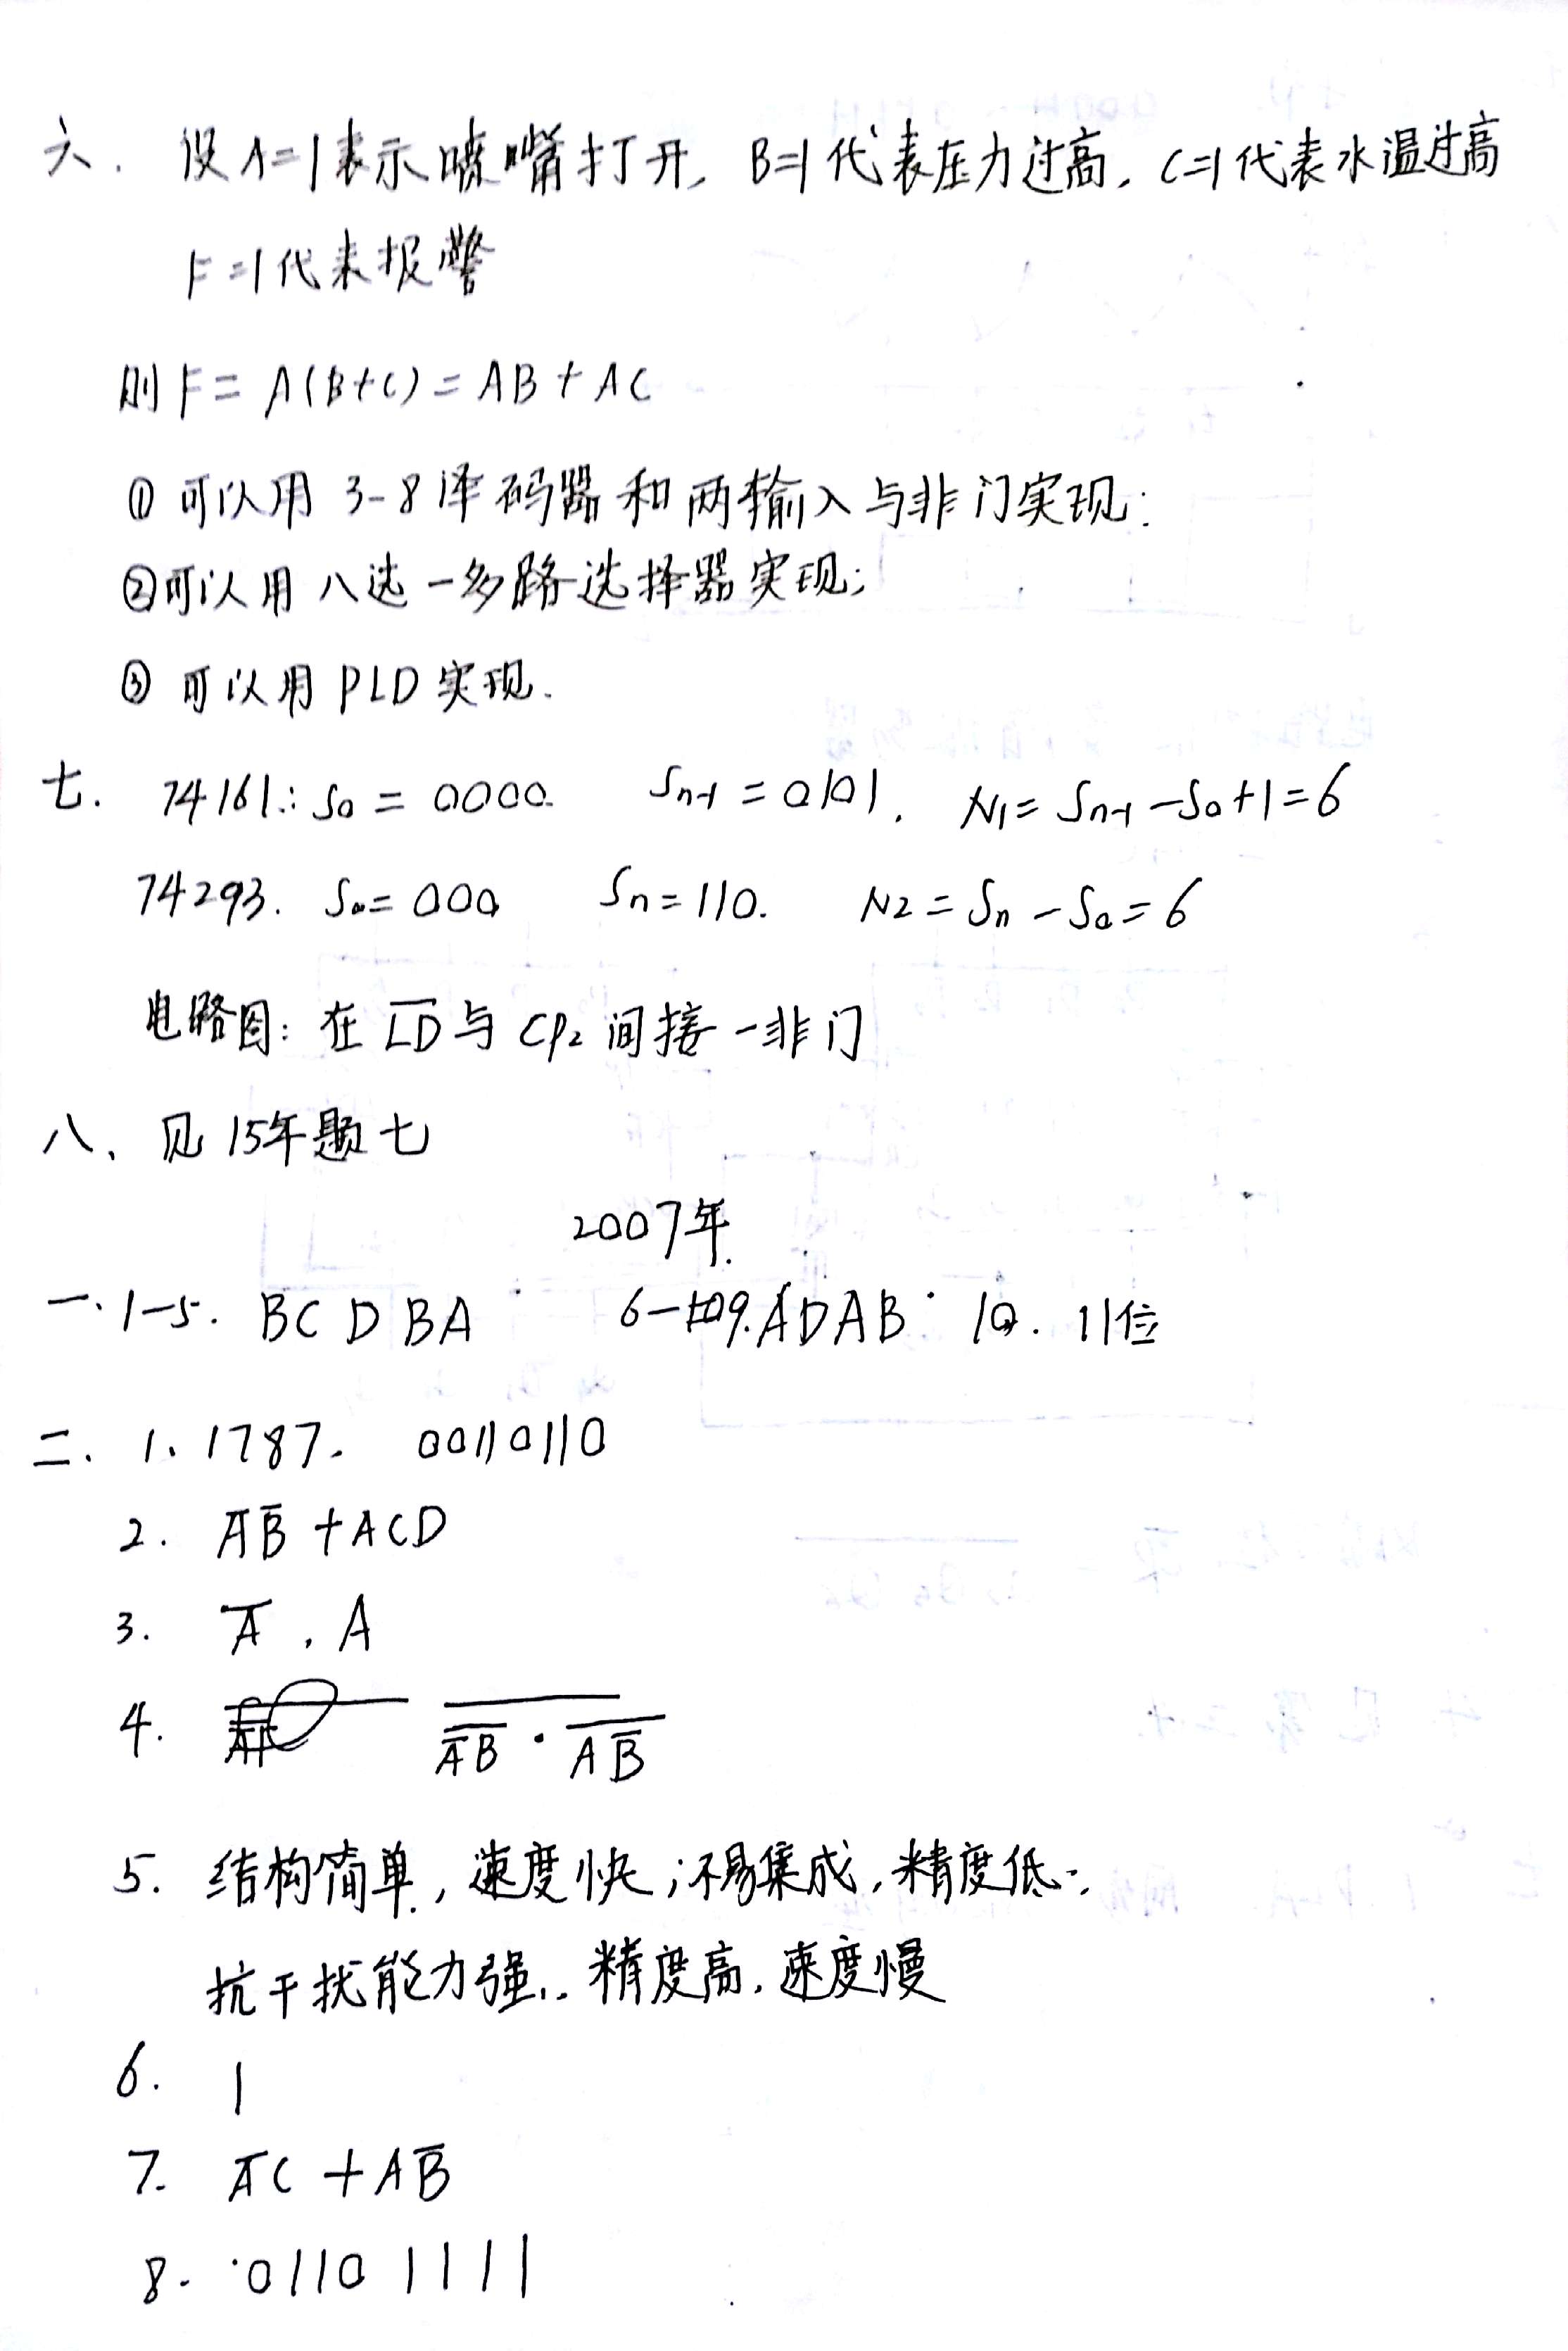 六. 设A=1表示喷嘴打开, B=1代表压力过高, C=1代表水温过高
F=1代表报警
则F=A(B+C)=AB+AC
① 可以用3-8译码器和两输入与非门实现;
②可以用八选一多路选择器实现;
③ 可以用PLD实现.
七. 74161: S₀=0000 Sₙ₋₁=0101. N₁=Sₙ₋₁-S₀+1=6
74293. S₀=000 Sₙ=110. N2=Sₙ-S₀=6
电路图: 在L̅D̅与CP₂间接一非门
八、见15年题七
2007年.
一.1-5. BCDBA 6-9.ADAB 10. 11位
二. 1. 1787. 00110110
2. A̅B̅+ACD
3. A̅, A
4. \overline{\overline{A̅B}·\overline{AB̅}}
5. 结构简单, 速度快;不易集成,精度低;
抗干扰能力强, 精度高, 速度慢
6. 1
7. A̅C+AB̅
8. 01101111